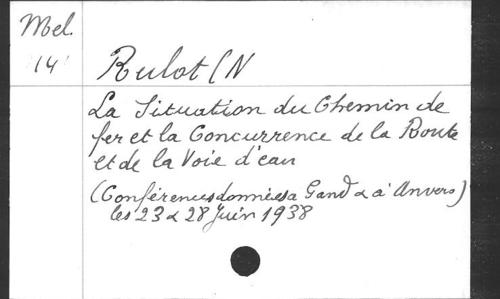 Mel.
14
Rulot (N
La Situation du Chemin de
fer et la Concurrence de la Route
et de la Voie d'eau
(Conférences données a Gand & à Anvers)
les 23 & 28 Juin 1938